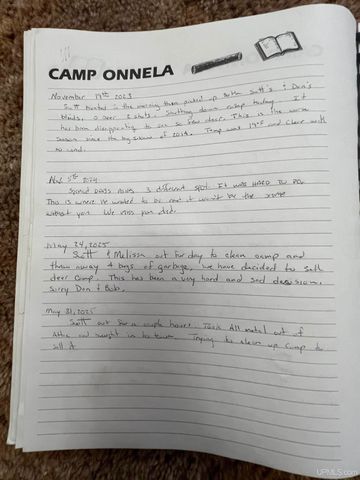 CAMP ONNELA
November 19th 2023
Scott hunted in the morning then picked up both Scott's & Don's
blinds. 0 deer 2 shots. Shutting down camp today. It
has been disappointing to see so few deer. This is the worst
season since the big snow of 2014. Temp was 19°F and Clear with
no wind.
Nov 5th 2024
Spread Dad's ashes 3 different spots. It was HARD TO DO.
This is where He wanted to be one it won't be the same
without you. We miss you dad.
May 24, 2025
Scott & Melissa out for day to clean camp and
throw away 4 bags of garbage, we have decided to sell
deer camp. This has been a very hard and sad decision.
Sorry Don & Bob.
May 31, 2025
Scott out for a couple hours. Took All metal out of
Attic and brought in to town. Trying to clean up Camp to
sell it
UPMLS.com